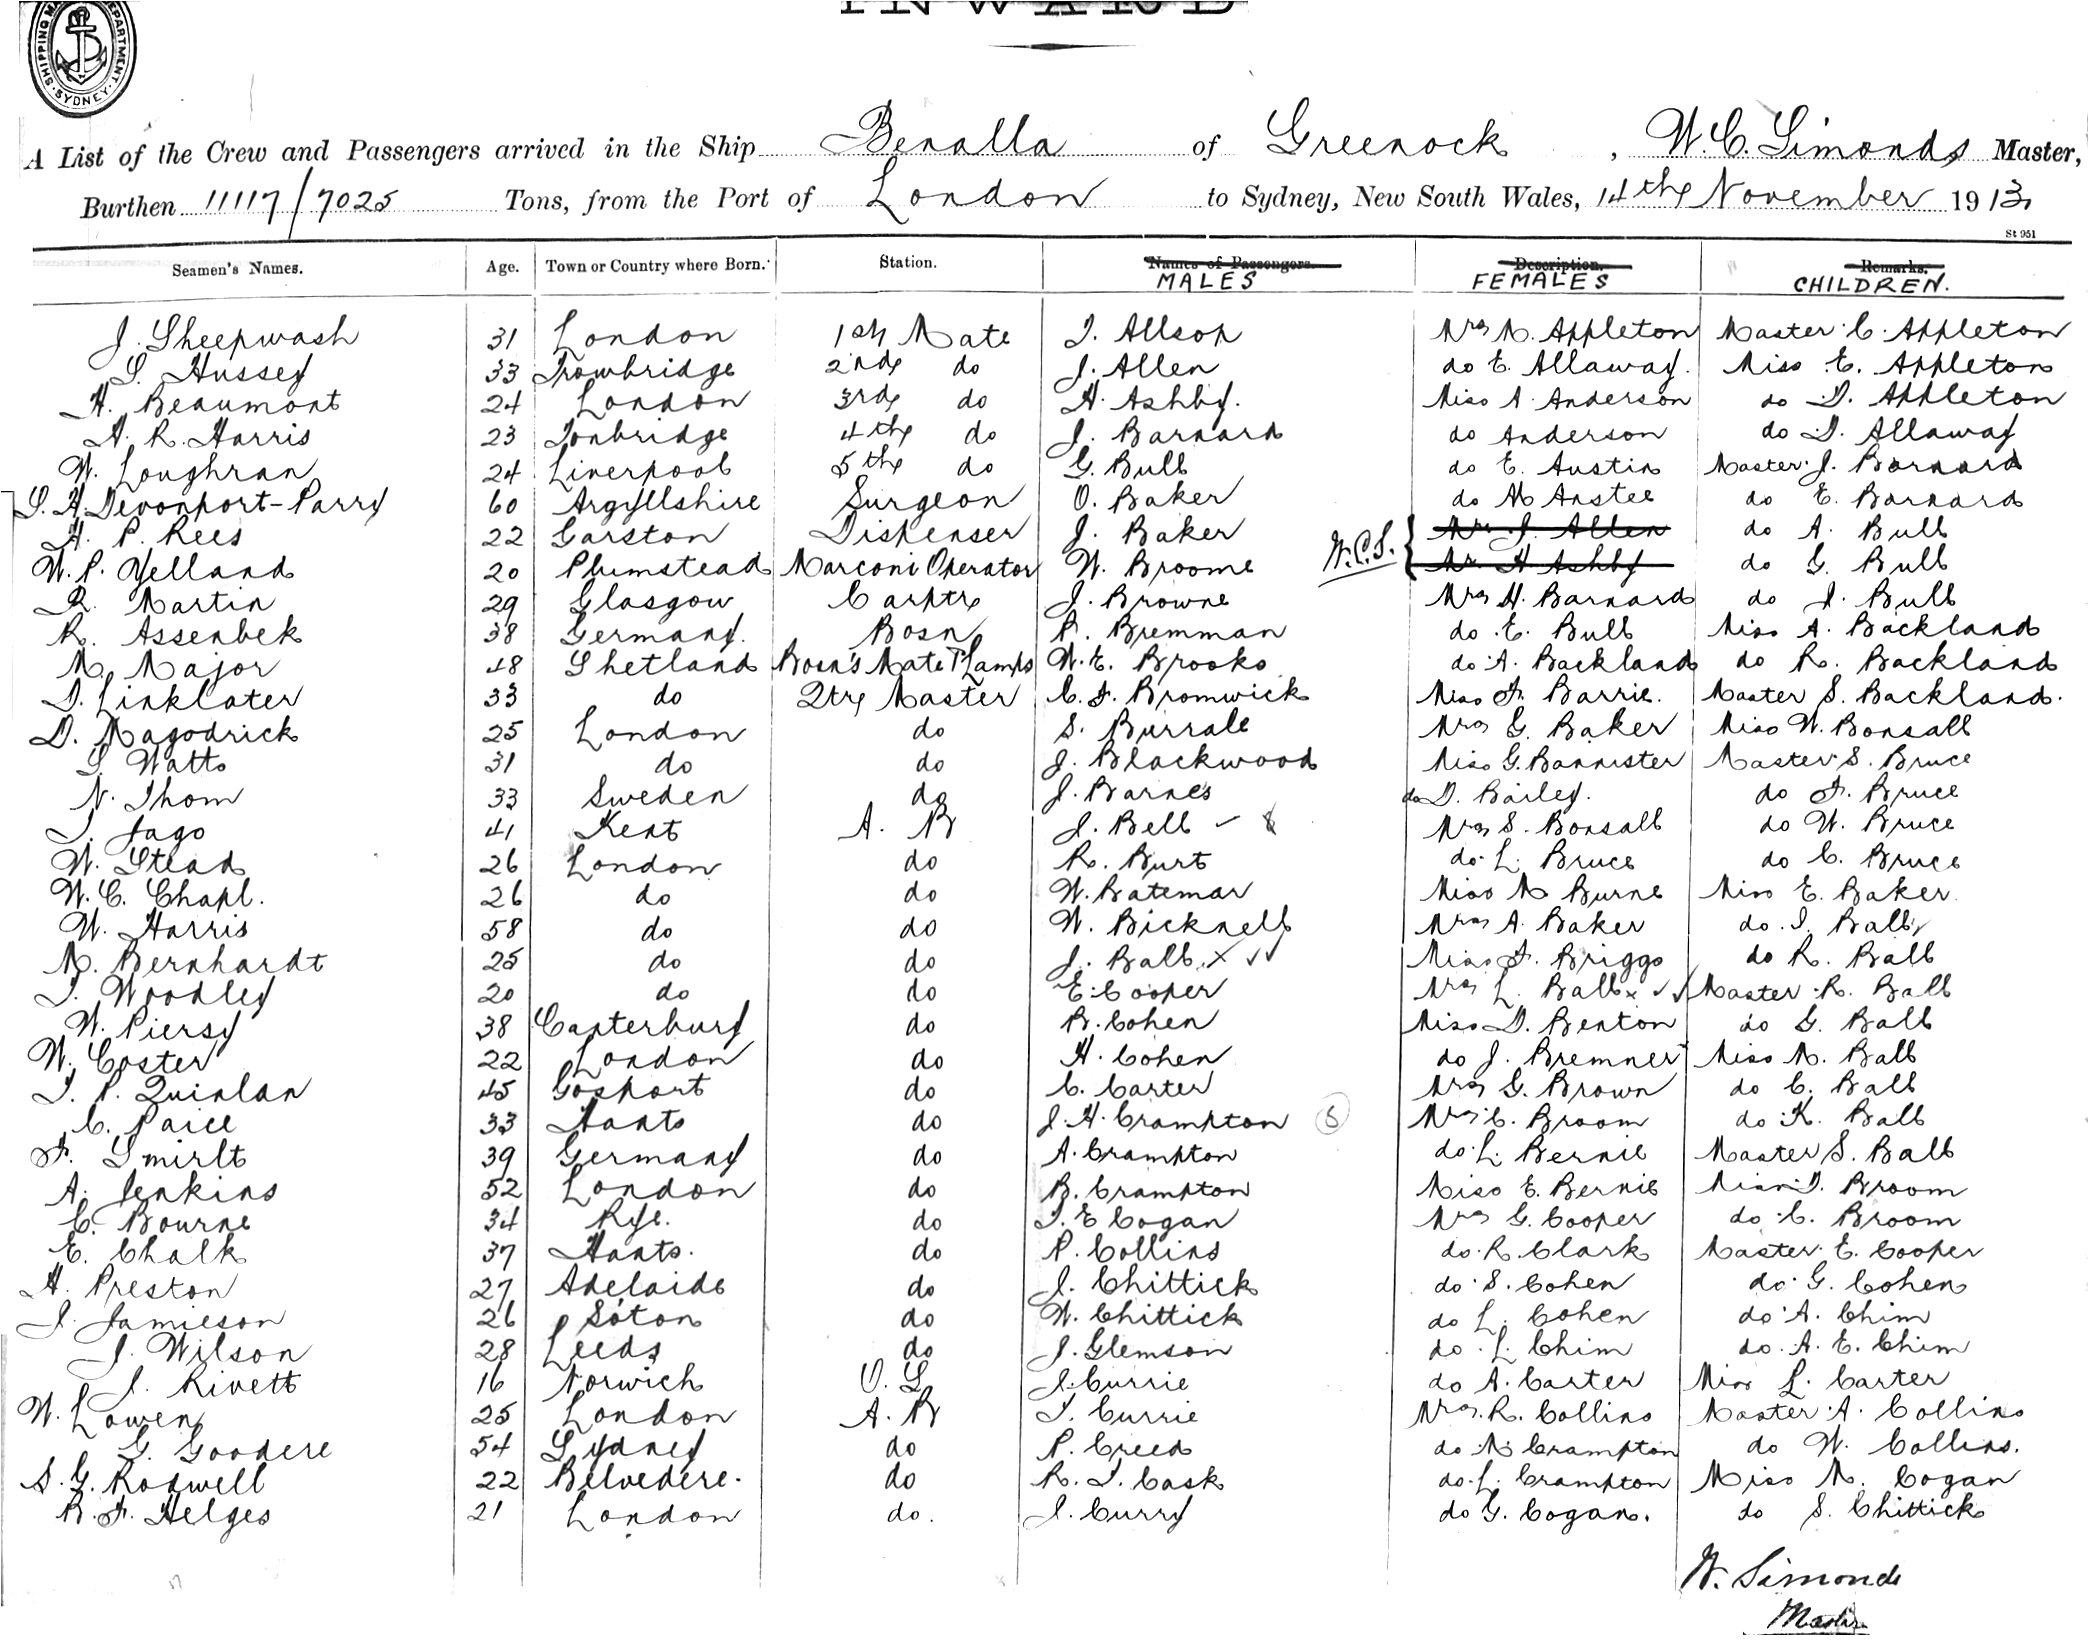 INWARD
SHIPPING MA DEPARTMENT. SYDNEY.
A List of the Crew and Passengers arrived in the Ship Benalla of Greenock, W. C. Simonds Master,
Burthen 11117/7025 Tons, from the Port of London to Sydney, New South Wales, 14th November 1913.
St 951
Seamen's Names. Age. Town or Country where Born. Station. Names of Passengers. Description. Remarks.
MALES FEMALES CHILDREN.
J. Sheepwash 31 London 1st Mate T. Allsop Mrs M. Appleton Master C. Appleton
S. Hussey 33 Trowbridge 2nd do J. Allen do E. Allaway. Miss E. Appleton
H. Beaumont 24 London 3rd do H. Ashby. Miss A. Anderson do D. Appleton
H. R. Harris 23 Tonbridge 4th do J. Barnard do Anderson do D. Allaway
W. Loughran 24 Liverpool 5th do G. Bull do E. Austin Master J. Barnard
S. H. Devonport-Parry 60 Argyllshire Surgeon O. Baker do M Anstee do E. Barnard
H. P. Rees 22 Garston Dispenser J. Baker Mrs J. Allen do A. Bull
W. P. Yelland 20 Plumstead Marconi Operator W. Broome W.C.S. Mrs H Ashby do G. Bull
R. Martin 29 Glasgow Carptr J. Browne Mrs H. Barnard do J. Bull
R. Assenbek 38 Germany. Bosn P. Bremman do E. Bull Miss A. Backland
M. Major 48 Shetland Bosn's Mate & Lamps W. E. Brooks do A. Backland do R. Backland
D. Linklater 33 do Qtr Master C. F. Bromwick Miss F. Barrie. Master S. Backland.
D. Magodrick 25 London do S. Burrale Mrs G. Baker Miss W. Bonsall
S. Watts 31 do do J. Blackwood Miss G. Bannister Master S. Bruce
N. Thom 33 Sweden do J. Barnes do D. Bailey. do F. Bruce
T. Jago 41 Kent A. B J. Bell Mrs S. Bonsall do W. Bruce
W. Stead 26 London do R. Burt do L. Bruce do C. Bruce
W. C. Chapl. 26 do do W. Bateman Miss M Burne Miss E. Baker
W. Harris 58 do do W. Bicknell Mrs A. Baker do I. Ball
M. Bernhardt 25 do do J. Ball x Miss F. Briggs do R. Ball
T. Woodley 20 do do E. Cooper Mrs L. Ball x Master R. Ball
W. Piersy 38 Canterbury do B. Cohen Miss D. Benton do G. Ball
W. Coster 22 London do H. Cohen do J. Bremner Miss M. Ball
T. P. Quinlan 45 Gosport do C. Carter Mrs G. Brown do C. Ball
C. Paice 33 Hants do J. H. Crampton Mrs C. Broom do K. Ball
F. Smirlt 39 Germany do A. Crampton do L. Bernie Master S. Ball
A. Jenkins 52 London do B. Crampton Miss E. Bernie Miss D. Broom
C. Bourne 34 Rye. do T. E Cogan Mrs G. Cooper do C. Broom
E. Chalk 37 Hants. do P. Collins do R Clark Master E. Cooper
H. Preston 27 Adelaide do J. Chittick do S. Cohen do G. Cohen
J. Jamieson 26 Soton do W. Chittick do L. Cohen do A. Chim
J. Wilson 28 Leeds do J. Glemson do L. Chim do A. E. Chim
J. Rivett 16 Norwich O. S J. Currie do A. Carter Miss L. Carter
W. Lowen 25 London A. B T. Currie Mrs R. Collins Master A. Collins
G. Goodere 54 Sydney do P. Creed do M Crampton do W. Collins.
S. G. Rodwell 22 Belvedere. do R. T. Cask do L. Crampton Miss M. Cogan
B. F. Helges 21 London do. J. Curry do G. Cogan. do S. Chittick
W. Simonds
Master